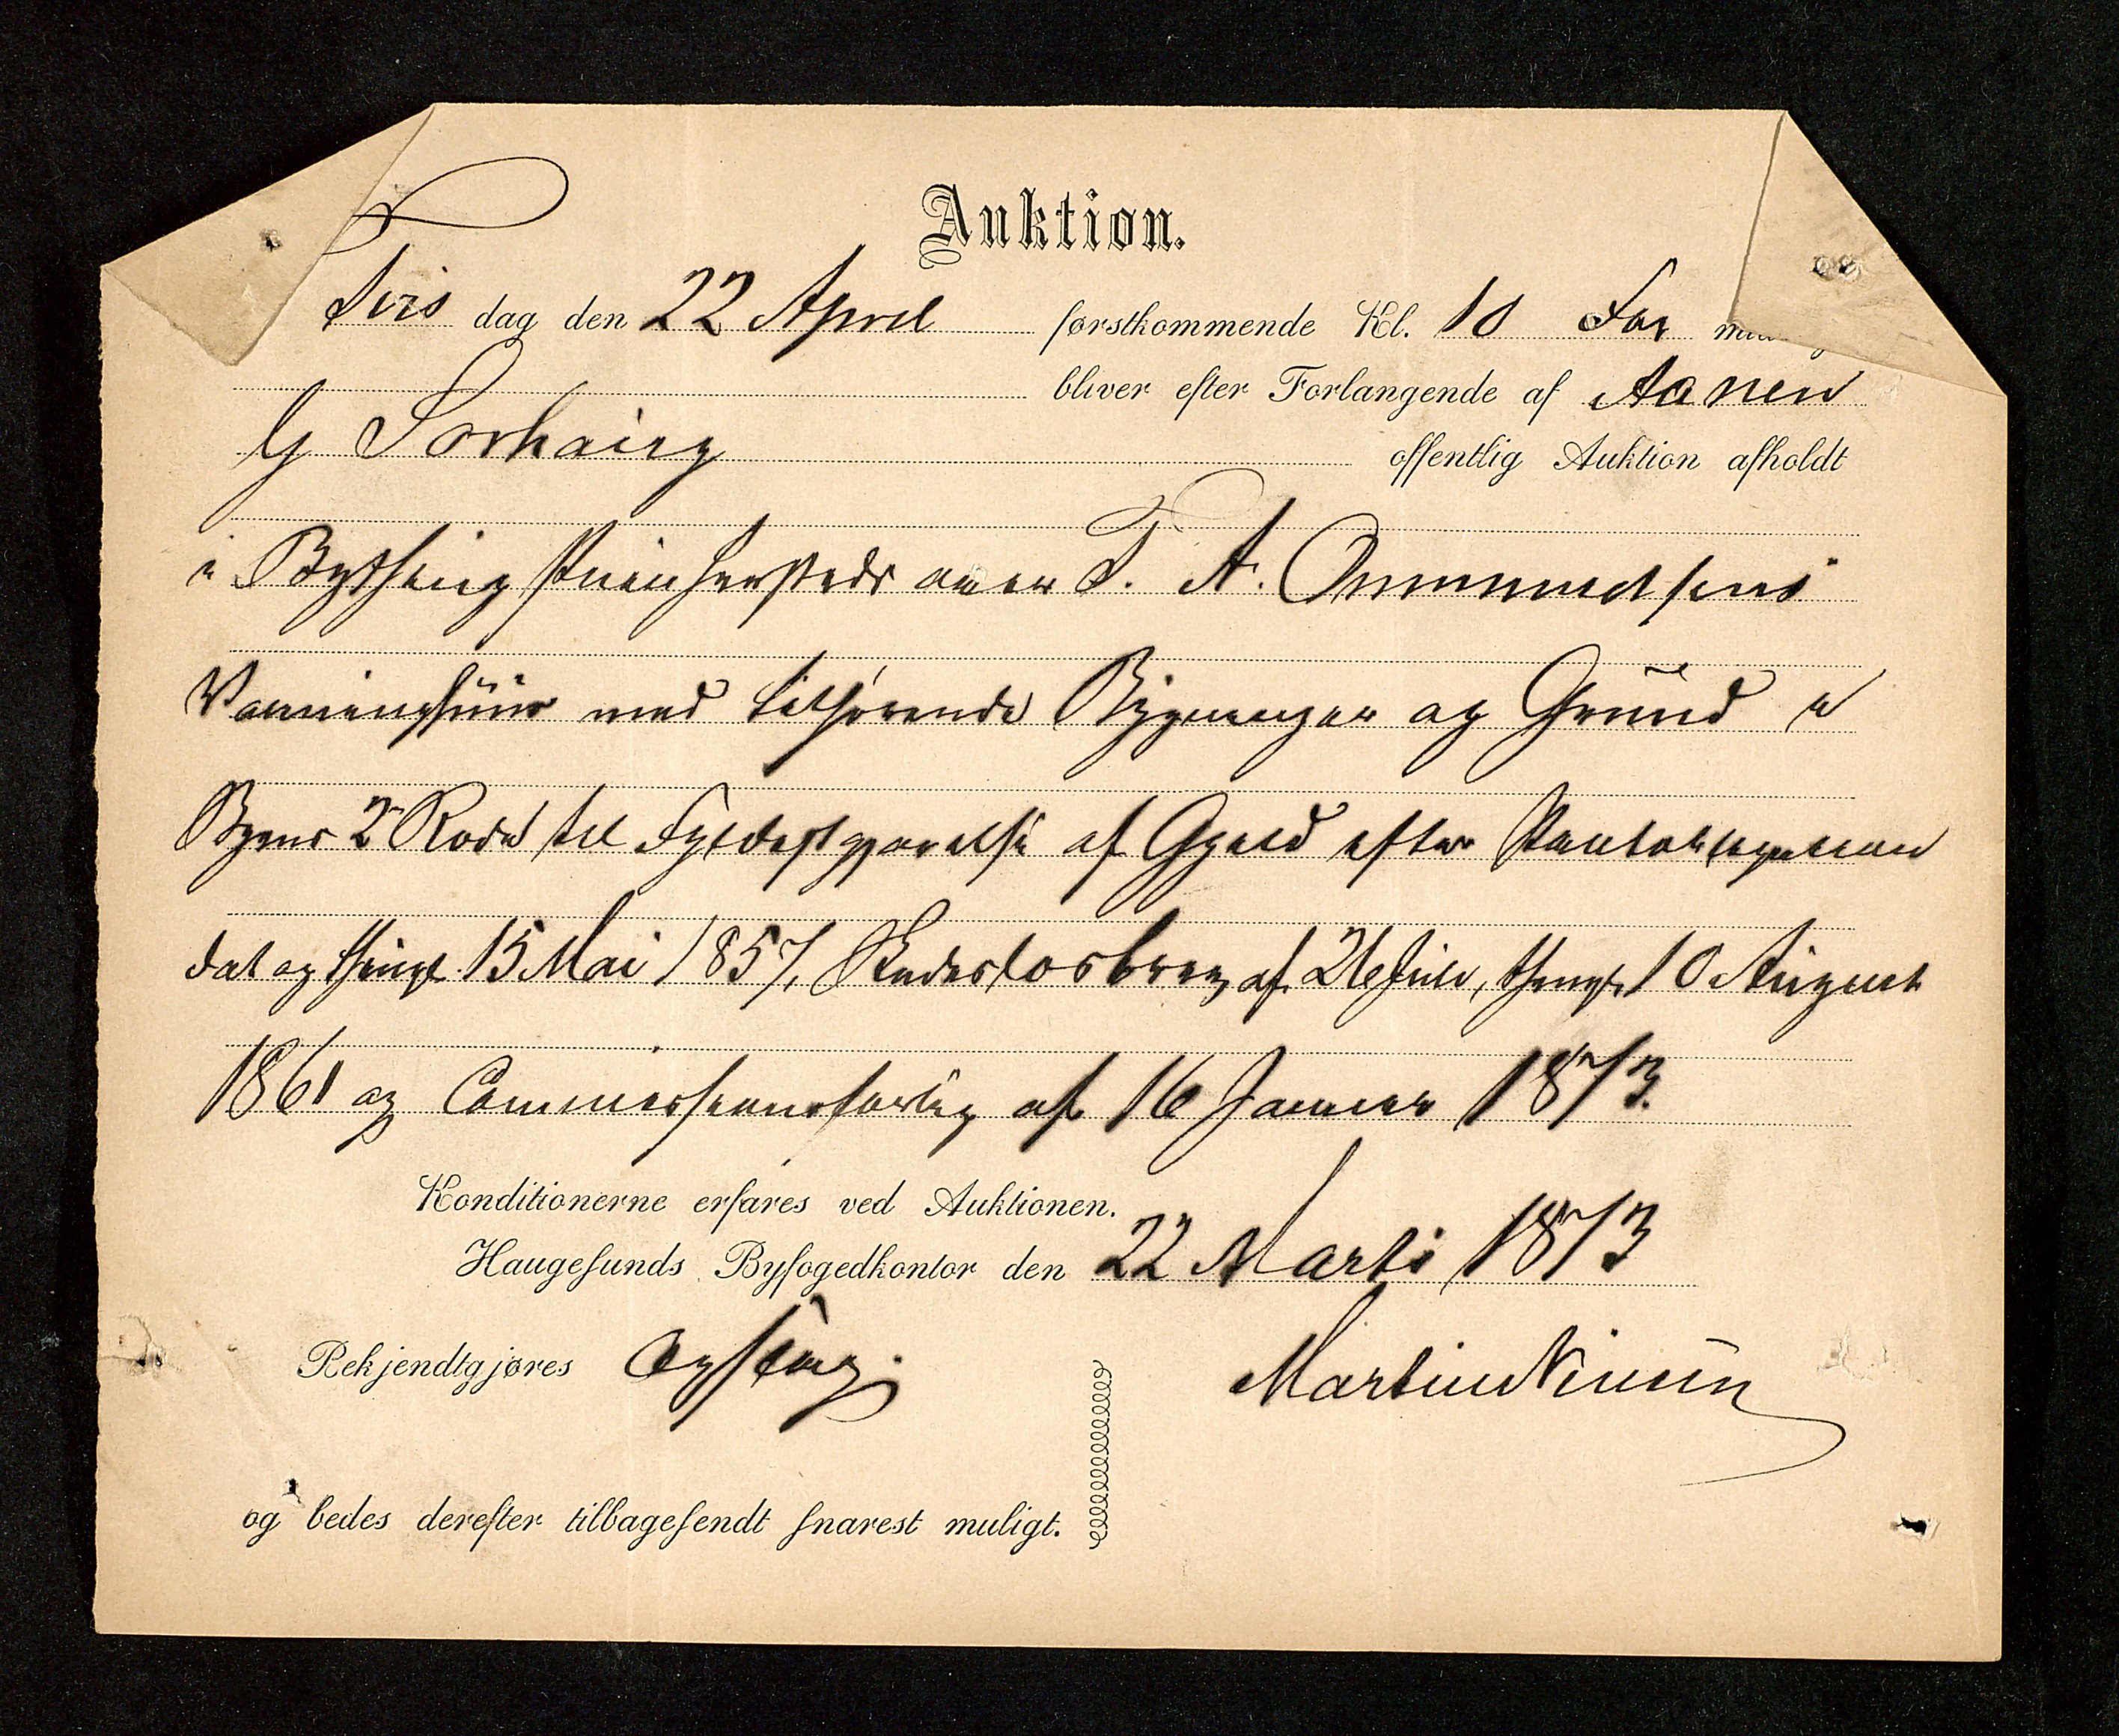 Auktion.
Tirsdag den 22 April førstkommende Kl. 10 For
bliver efter Forlangende af Aanen
G Sørhaug
offentlig Auktion afholdt
i Bythingstuen hersteds over T. A. Ommundsens
Vaaningshuus med tilhørende Bygninger og Grund i
Byens 2den Rode til Fyldestgjørelse af Gjæld efter Pantobligation
dat og thingl. 15 Mai 1857, Skadesløsbrev af 26 Juli, thingl. 10 August
1861 og Commissionsforlig af 16 Januar 1873.
Konditionerne erfares ved Auktionen.
Haugesunds Byfogedkontor den 22 Marts 1873
Bekjendtgjøres Martin
og bedes derefter tilbagesendt snarest muligt.